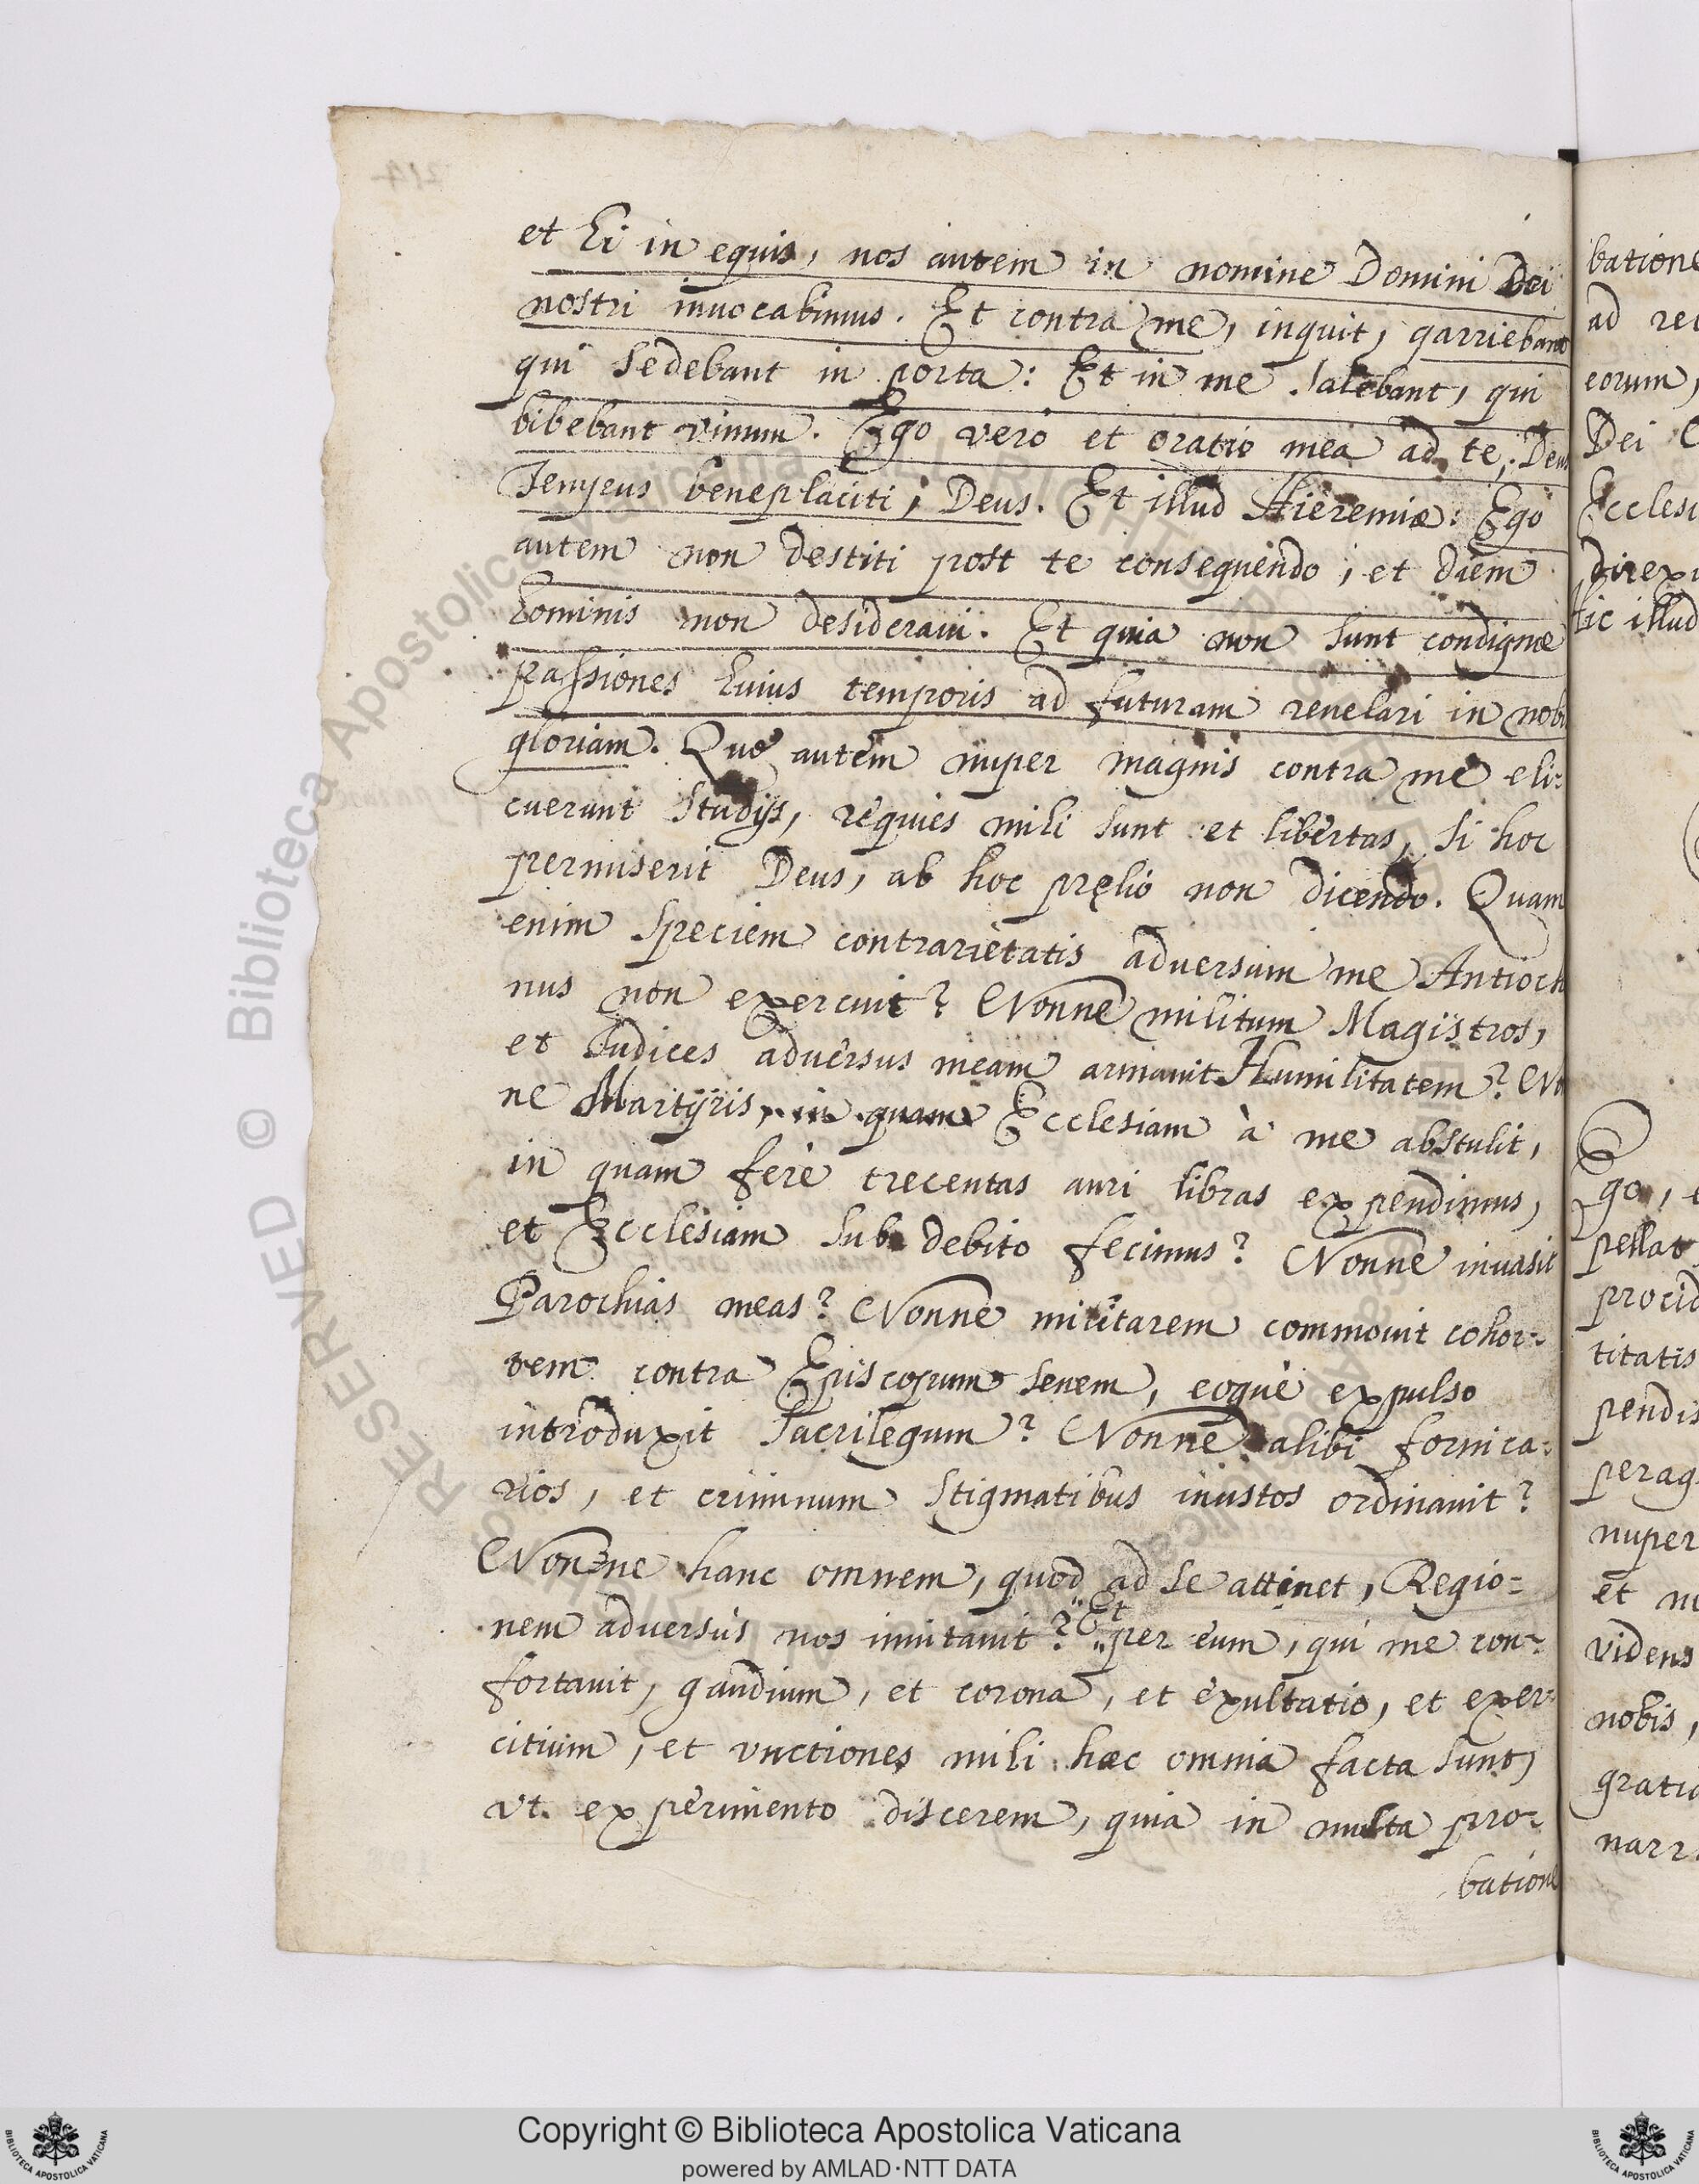 et hi in equis, nos autem in nomine Domini Dei
nostri inuocabimus. Et contra me, inquit, garriebant
qui sedebant in porta: Et in me salebant, qui
bibebant vinum. Ego vero et oratio mea ad te, Deus
Tempus beneplaciti, Deus. Et illud Hieremiæ: Ego
autem non destiti post te consequendo, et diem
hominis non desideraui. Et quia non sunt condignæ
passiones huius temporis ad futuram reuelari in nobi
gloriam. Quæ autem nuper magnis contra me eli-
cuerunt studijs, requies mihi sunt et libertas, si hoc
permiserit Deus, ab hoc pręlio non dicendo. Quam
enim speciem contrarietatis aduersum me Antioch
nus non exercuit? Nonne militum Magistros,
et Iudices aduersus meam armauit Humilitatem? No
ne Martyris, in quam Ecclesiam à me abstulit,
in quam ferè trecentas auri libras expendimus,
et Ecclesiam sub debito fecimus? Nonne inuasit
Parochias meas? Nonne militarem commouit cohor-
tem contra Episcopum senem, eoque expulso
introduxit sacrilegum? Nonne alibi fornica-
rios, et criminum stigmatibus inustos ordinauit?
Nonne hanc omnem, quod ad se attinet, Regio=
nem aduersus nos inuitauit? Et per eum, qui me con-
fortauit, gaudium, et corona, et exultatio, et exer-
citium, et vnctiones mihi hæc omnia facta sunt,
vt experimento discerem, quia in multa pro-
batione
batione
ad re
eorum,
Dei
Ecclesi
direxi
sic illud
Ego, e
pellat
procid
titatis
pendis
perag
nuper
et m
videns
nobis,
gratia
narr
RESERVED © Biblioteca Apostolica Vaticana
Copyright © Biblioteca Apostolica Vaticana
powered by AMLAD·NTT DATA
BIBLIOTECA APOSTOLICA VATICANA
BIBLIOTECA APOSTOLICA VATICANA